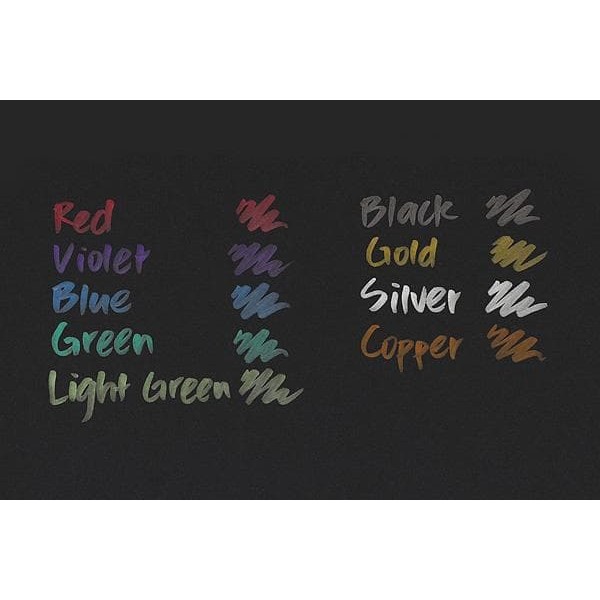 Red
Violet
Blue
Green
Light Green
Black
Gold
Silver
Copper